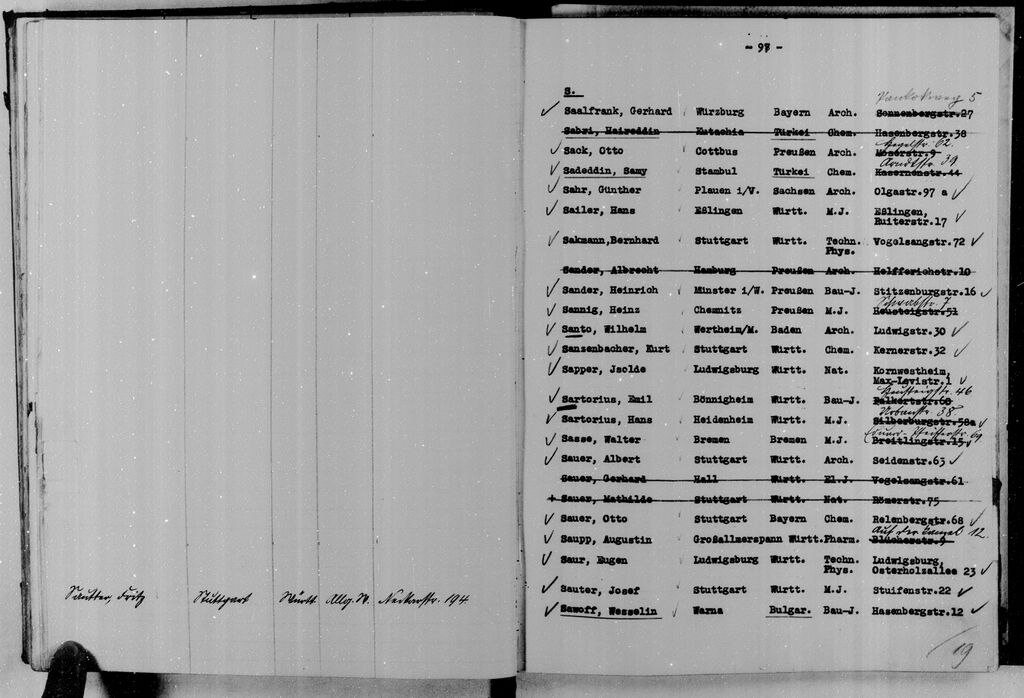 Sautter, Fritz Stuttgart Württ. Allg. W. Neckarstr. 194
- 97 -
S.
5
Saalfrank, Gerhard Würzburg Bayern Arch. Sonnenbergstr.27
Sabri, Haireddin Kutachia Türkei Chem. Hasenbergstr.38
Hegelstr. 62.
Sack, Otto Cottbus Preußen Arch. Moserstr.9
Arndtstr. 39
Sadeddin, Samy Stambul Türkei Chem. Kasernenstr.44
Sahr, Günther Plauen i/V. Sachsen Arch. Olgastr.97 a
Sailer, Hans Eßlingen Württ. M.J. Eßlingen,
Ruiterstr.17
Sakmann,Bernhard Stuttgart Württ. Techn. Vogelsangstr.72
Phys.
Sander, Albrecht Hamburg Preußen Arch. Helfferichstr.10
Sander, Heinrich Münster i/W. Preußen Bau-J. Stitzenburgstr.16
Schwabstr. 7
Sannig, Heinz Chemnitz Preußen M.J. Heusteigstr.51
Santo, Wilhelm Wertheim/M. Baden Arch. Ludwigstr.30
Sanzenbacher, Kurt Stuttgart Württ. Chem. Kernerstr.32
Sapper, Jsolde Ludwigsburg Württ. Nat. Kornwestheim,
Max-Levistr.1
Heusteigstr. 46
Sartorius, Emil Bönnigheim Württ. Bau-J. Falkertstr.60
Urbanstr. 38
Sartorius, Hans Heidenheim Württ. M.J. Silberburgstr.58a
Eduard-Pfeifferstr. 69
Sasse, Walter Bremen Bremen M.J. Breitlingstr.15
Sauer, Albert Stuttgart Württ. Arch. Seidenstr.63
Sauer, Gerhard Hall Württ. El.J. Vogelsangstr.61
+ Sauer, Mathilde Stuttgart Württ. Nat. Römerstr.75
Sauer, Otto Stuttgart Bayern Chem. Relenbergstr.68
Auf der 12.
Saupp, Augustin Großallmerspann Württ. Pharm. Blücherstr.9
Saur, Eugen Ludwigsburg Württ. Techn. Ludwigsburg,
Phys. Osterholzallee 23
Sauter, Josef Stuttgart Württ. M.J. Stuifenstr.22
Sawoff, Wesselin Warna Bulgar. Bau-J. Hasenbergstr.12
19